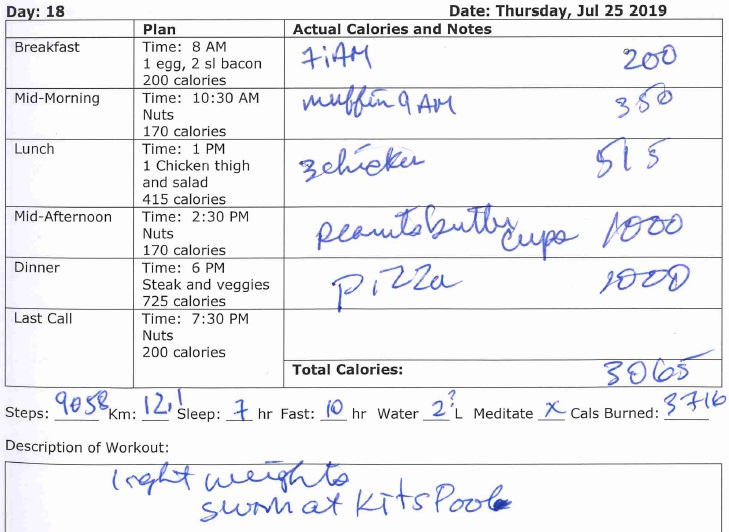 Day: 18 Date: Thursday, Jul 25 2019
Plan Actual Calories and Notes
Breakfast Time: 8 AM 7:AM 200
1 egg, 2 sl bacon
200 calories
Mid-Morning Time: 10:30 AM muffin 9 AM 350
Nuts
170 calories
Lunch Time: 1 PM 515
1 Chicken thigh 3 chicken
and salad
415 calories
Mid-Afternoon Time: 2:30 PM peanuts butter cups 1000
Nuts
170 calories
Dinner Time: 6 PM pizza 1000
Steak and veggies
725 calories
Last Call Time: 7:30 PM
Nuts
200 calories
Total Calories: 3065
Steps: 9058 Km: 12,1 Sleep: 7 hr Fast: 10 hr Water 2? L Meditate x Cals Burned: 3716
Description of Workout:
light weights
swim at Kits Pool